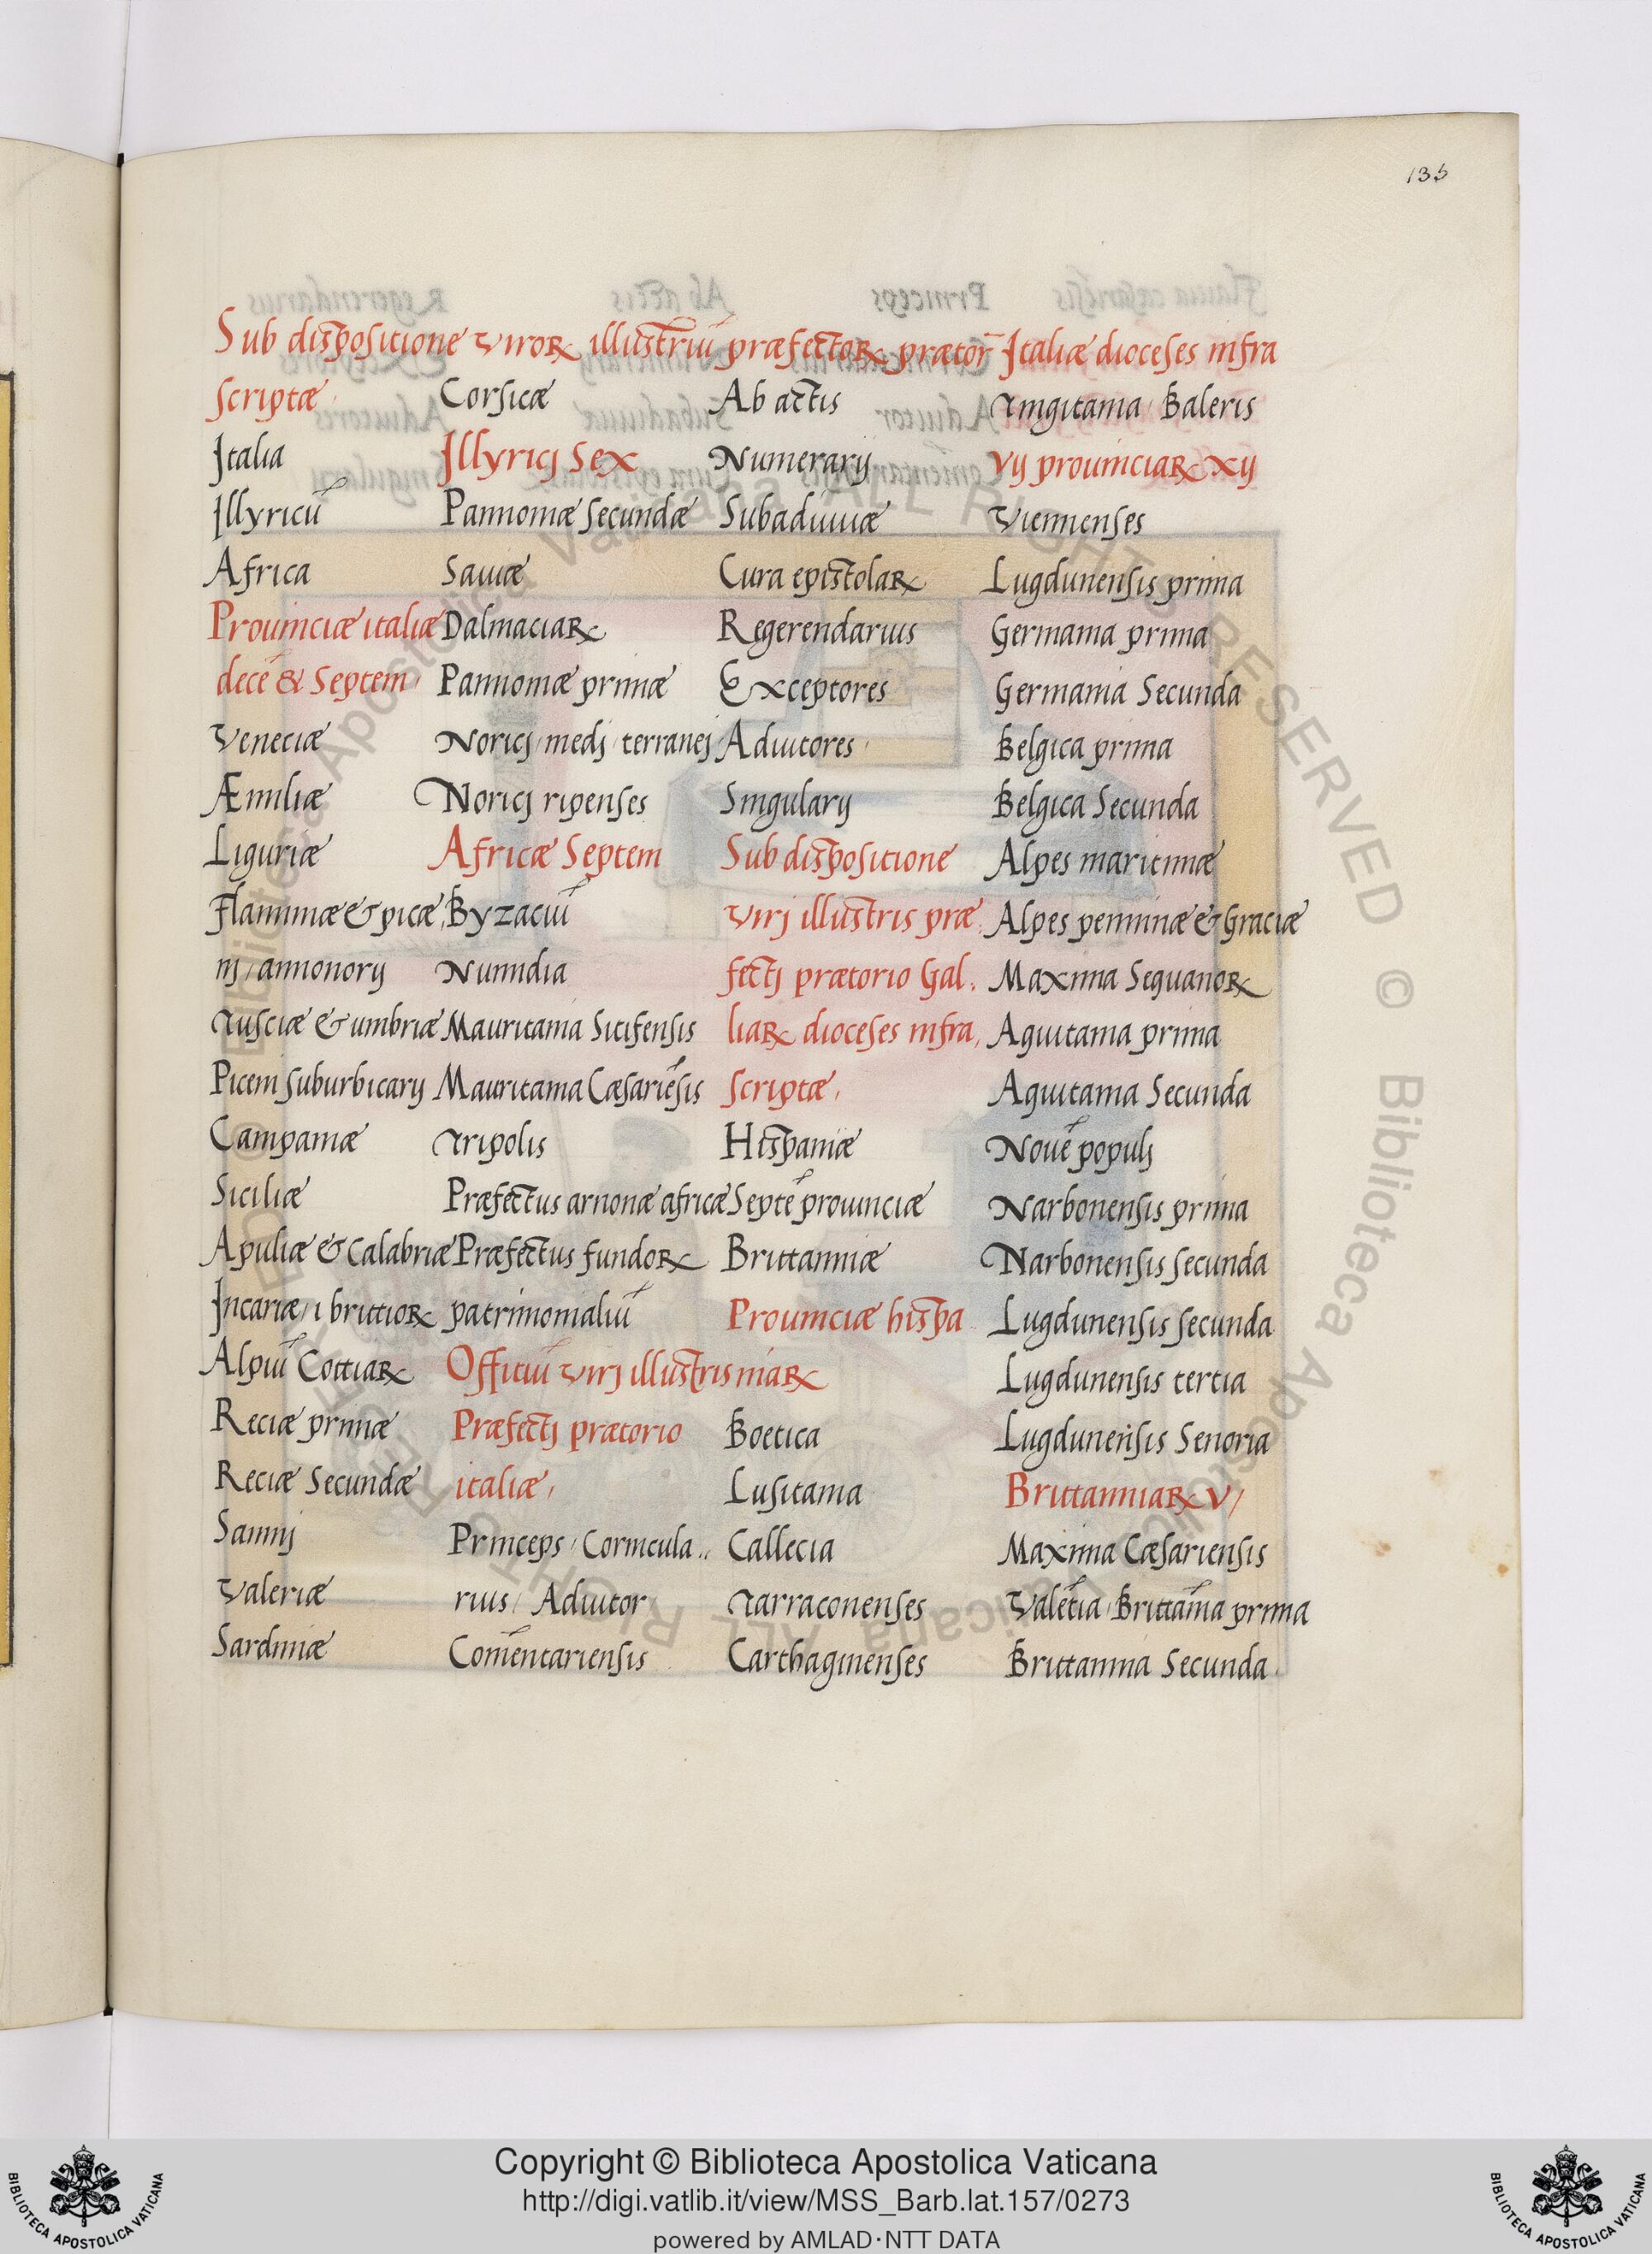 135
Sub dispositione viroꝝ illustriū præfectoꝝ prætor̄ Italiæ dioceses infra
scriptæ
Italia
Illyricū
Africa
Prouinciæ italiæ
decē & Septem
Veneciæ
Æmiliæ
Liguriæ
Flaminiæ & picæ,
nj, annonorij
Tusciæ & umbriæ
Piceni suburbicarij
Campaniæ
Siciliæ
Apuliæ & Calabriæ
Incariæ, i brittioꝝ
Alpiū Cottiaꝝ
Reciæ primæ
Reciæ Secundæ
Samnij
Valeriæ
Sardiniæ
Corsicæ
Illyricj Sex
Pannoniæ secundæ
Sauiæ
Dalmaciaꝝ
Pannoniæ primæ
Noricj, medj, terranej
Noricj ripenses
Africæ Septem
Byzaciū
Numidia
Mauritania Sitifensis
Mauritania Cæsariēsis
Tripolis
Præfectus arnonæ africæ
Præfectus fundoꝝ
patrimonialiū
Officiū virj illustris
Præfectj prætorio
italiæ,
Princeps, Cornicula..
rius, Adiutor
Com̄entariensis
Ab actis
Numerarij
Subadiuuæ
Cura epistolaꝝ
Regerendarius
Exceptores
Adiutores,
Singularij
Sub dispositione
virj illustris præ,
fectj prætorio Gal,
liaꝝ dioceses infra,
scriptæ,
Hispaniæ
Septē prouinciæ
Brittanniæ
Prouinciæ hispa
niaꝝ
Boetica
Lusitania
Callecia
Tarraconenses
Carthaginenses
Tingitania, Baleris
Vij prouinciaꝝ Xij
Viennenses
Lugdunensis prima
Germania prima
Germania Secunda
Belgica prima
Belgica Secunda
Alpes maritimæ
Alpes penninæ & Graciæ
Maxima Sequanoꝝ
Aquitania prima
Aquitania Secunda
Nouē populj
Narbonensis prima
Narbonensis secunda
Lugdunensis secunda
Lugdunensis tertia
Lugdunensis Senoria
Brittanniaꝝ V,
Maxima Cæsariensis
Valētia, Brittānia prima
Brittannia Secunda
Copyright © Biblioteca Apostolica Vaticana
http://digi.vatlib.it/view/MSS_Barb.lat.157/0273
powered by AMLAD·NTT DATA
BIBLIOTECA APOSTOLICA VATICANA
BIBLIOTECA APOSTOLICA VATICANA